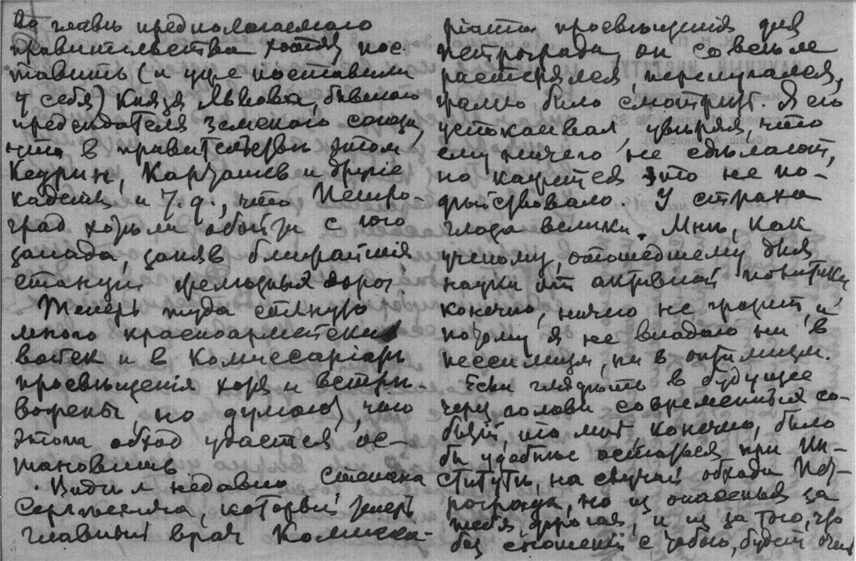 Во главѣ предполагаемаго
правительства хотят пос-
тавить (и уже поставили
у себя) Князя Львова, бывшаго
председателя Земского союза,
что в правительстве этом
Кедрин, Карташев и другие
кадеты и т.д., что Петро-
град хотели обойти с юго
запада, заняв ближайшия
станции железных дорог.
Теперь туда стянуто
много красноармейских
войск и в Комиссариате
просвещения хотя и встре-
вожены, но думают, что
этот обход удастся ос-
тановить.
Видил недавно Степана
Сергеевича, который теперь
главный врач Комисса-
ріата просвещения для
Петрограда, он совсем
растерялся, перепугался,
жалко было смотреть. Я его
успокаивал, уверяя, что
ему ничего не сделают,
но кажется это не по-
действовало. У страха
глаза велики. Мне, как
ученому, отошедшему для
науки от активной политики
конечно, ничего не грозит, и
потому я не впадаю ни в
пессимизм, ни в оптимизм.
Если глядеть в будущее
через головы современных со-
бытий, то мне, конечно, было
бы удобнее остаться при Ин-
ституте, на случай обхода Пет-
рограда, но из опасенья за
тебя, дорогая, и из за того, что
без сношений с тобою, будет очень